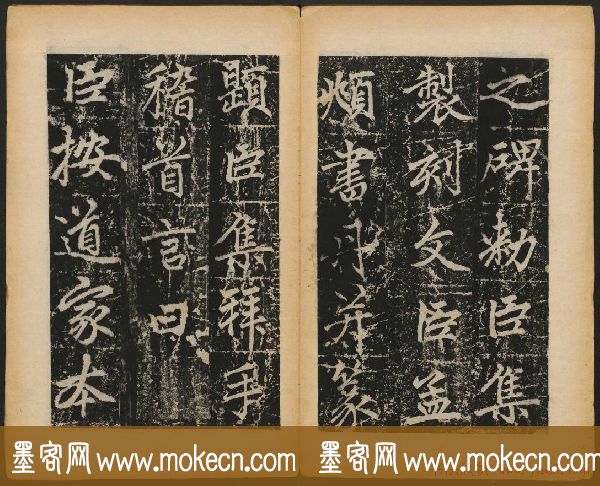 之碑勅臣集
製刻文臣孟
頫書丹并篆
題臣集拜手
稽首言曰
臣按道家本
墨客网 www.mokecn.com 墨客网 www.mokecn.com